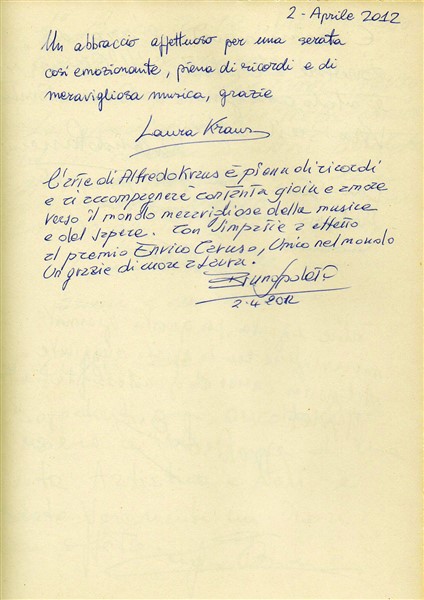 2 - Aprile 2012
Un abbraccio affettuoso per una serata
così emozionante, piena di ricordi e di
meravigliosa musica, grazie
Laura Kraus
L'arte di Alfredo Kraus è piena di ricordi
e ci accompagnerà con tanta gioia e amore
verso il mondo meraviglioso della musica
e del sapere. Con Simpatia e affetto
al premio Enrico Caruso, Unico nel mondo
Un grazie di cuore a Laura.
2-4-2012